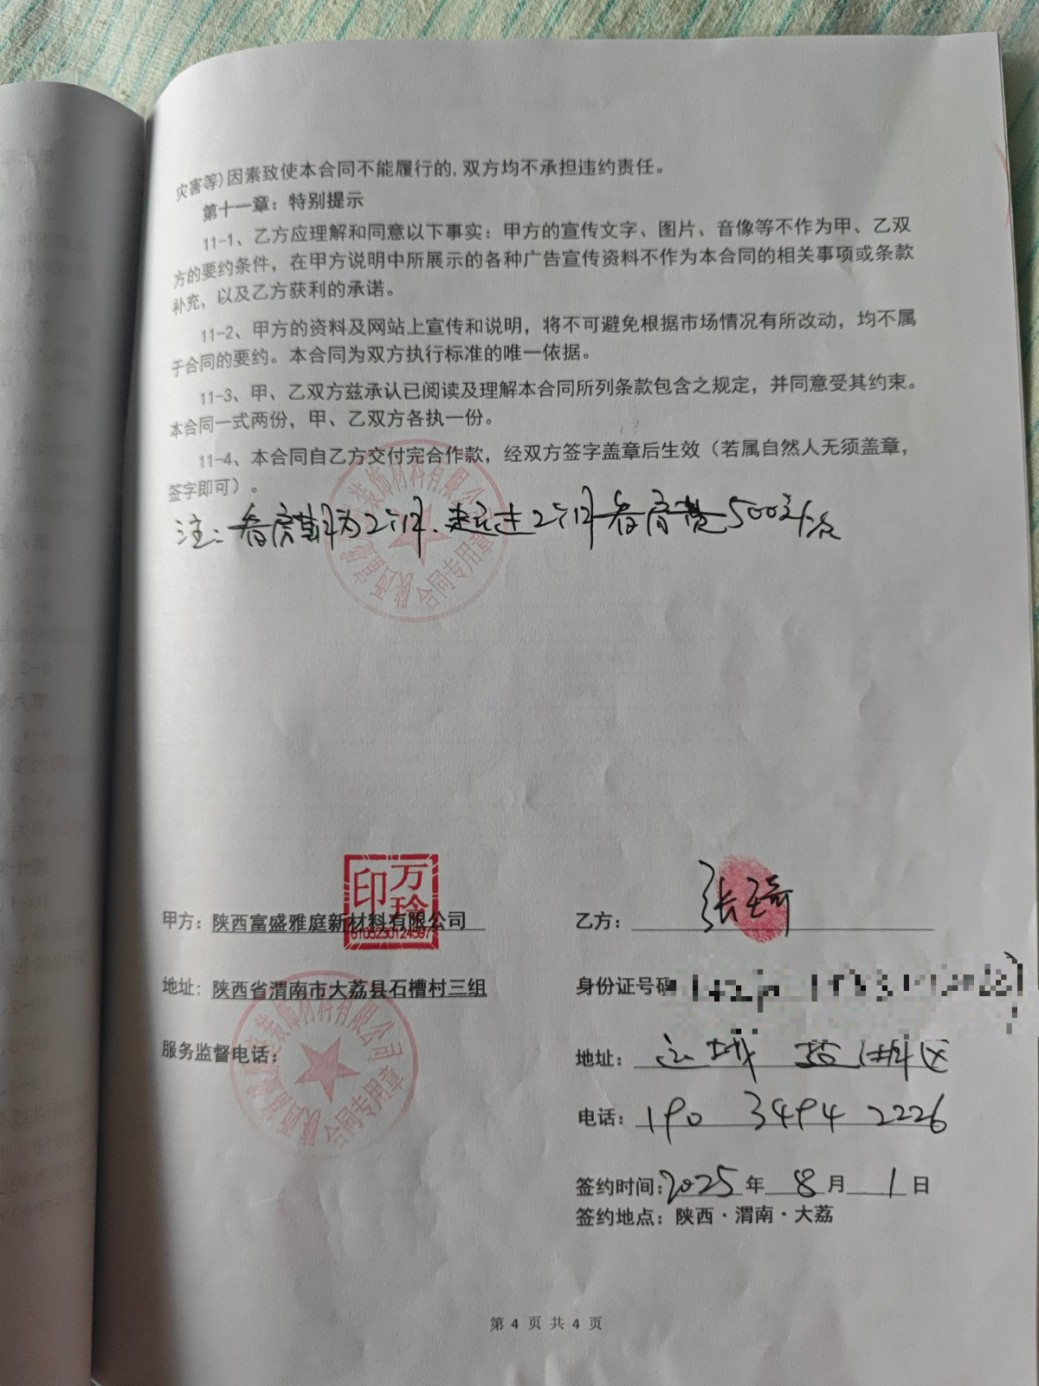 灾害等)因素致使本合同不能履行的,双方均不承担违约责任。
第十一章：特别提示
11-1、乙方应理解和同意以下事实：甲方的宣传文字、图片、音像等不作为甲、乙双
方的要约条件，在甲方说明中所展示的各种广告宣传资料不作为本合同的相关事项或条款
补充，以及乙方获利的承诺。
11-2、甲方的资料及网站上宣传和说明，将不可避免根据市场情况有所改动，均不属
于合同的要约。本合同为双方执行标准的唯一依据。
11-3、甲、乙双方兹承认已阅读及理解本合同所列条款包含之规定，并同意受其约束。
本合同一式两份，甲、乙双方各执一份。
11-4、本合同自乙方交付完合作款，经双方签字盖章后生效（若属自然人无须盖章，
签字即可）。
注：看房期为2个月.超过2个月看房费500元/次
合同专用章
万玲印
甲方：陕西富盛雅庭新材料有限公司
乙方：张琦
地址：陕西省渭南市大荔县石槽村三组
身份证号码
服务监督电话：
合同专用章
地址：运城 盐湖区
电话：190 3494 2226
签约时间:2025年8月1日
签约地点：陕西·渭南·大荔
第 4 页 共 4 页